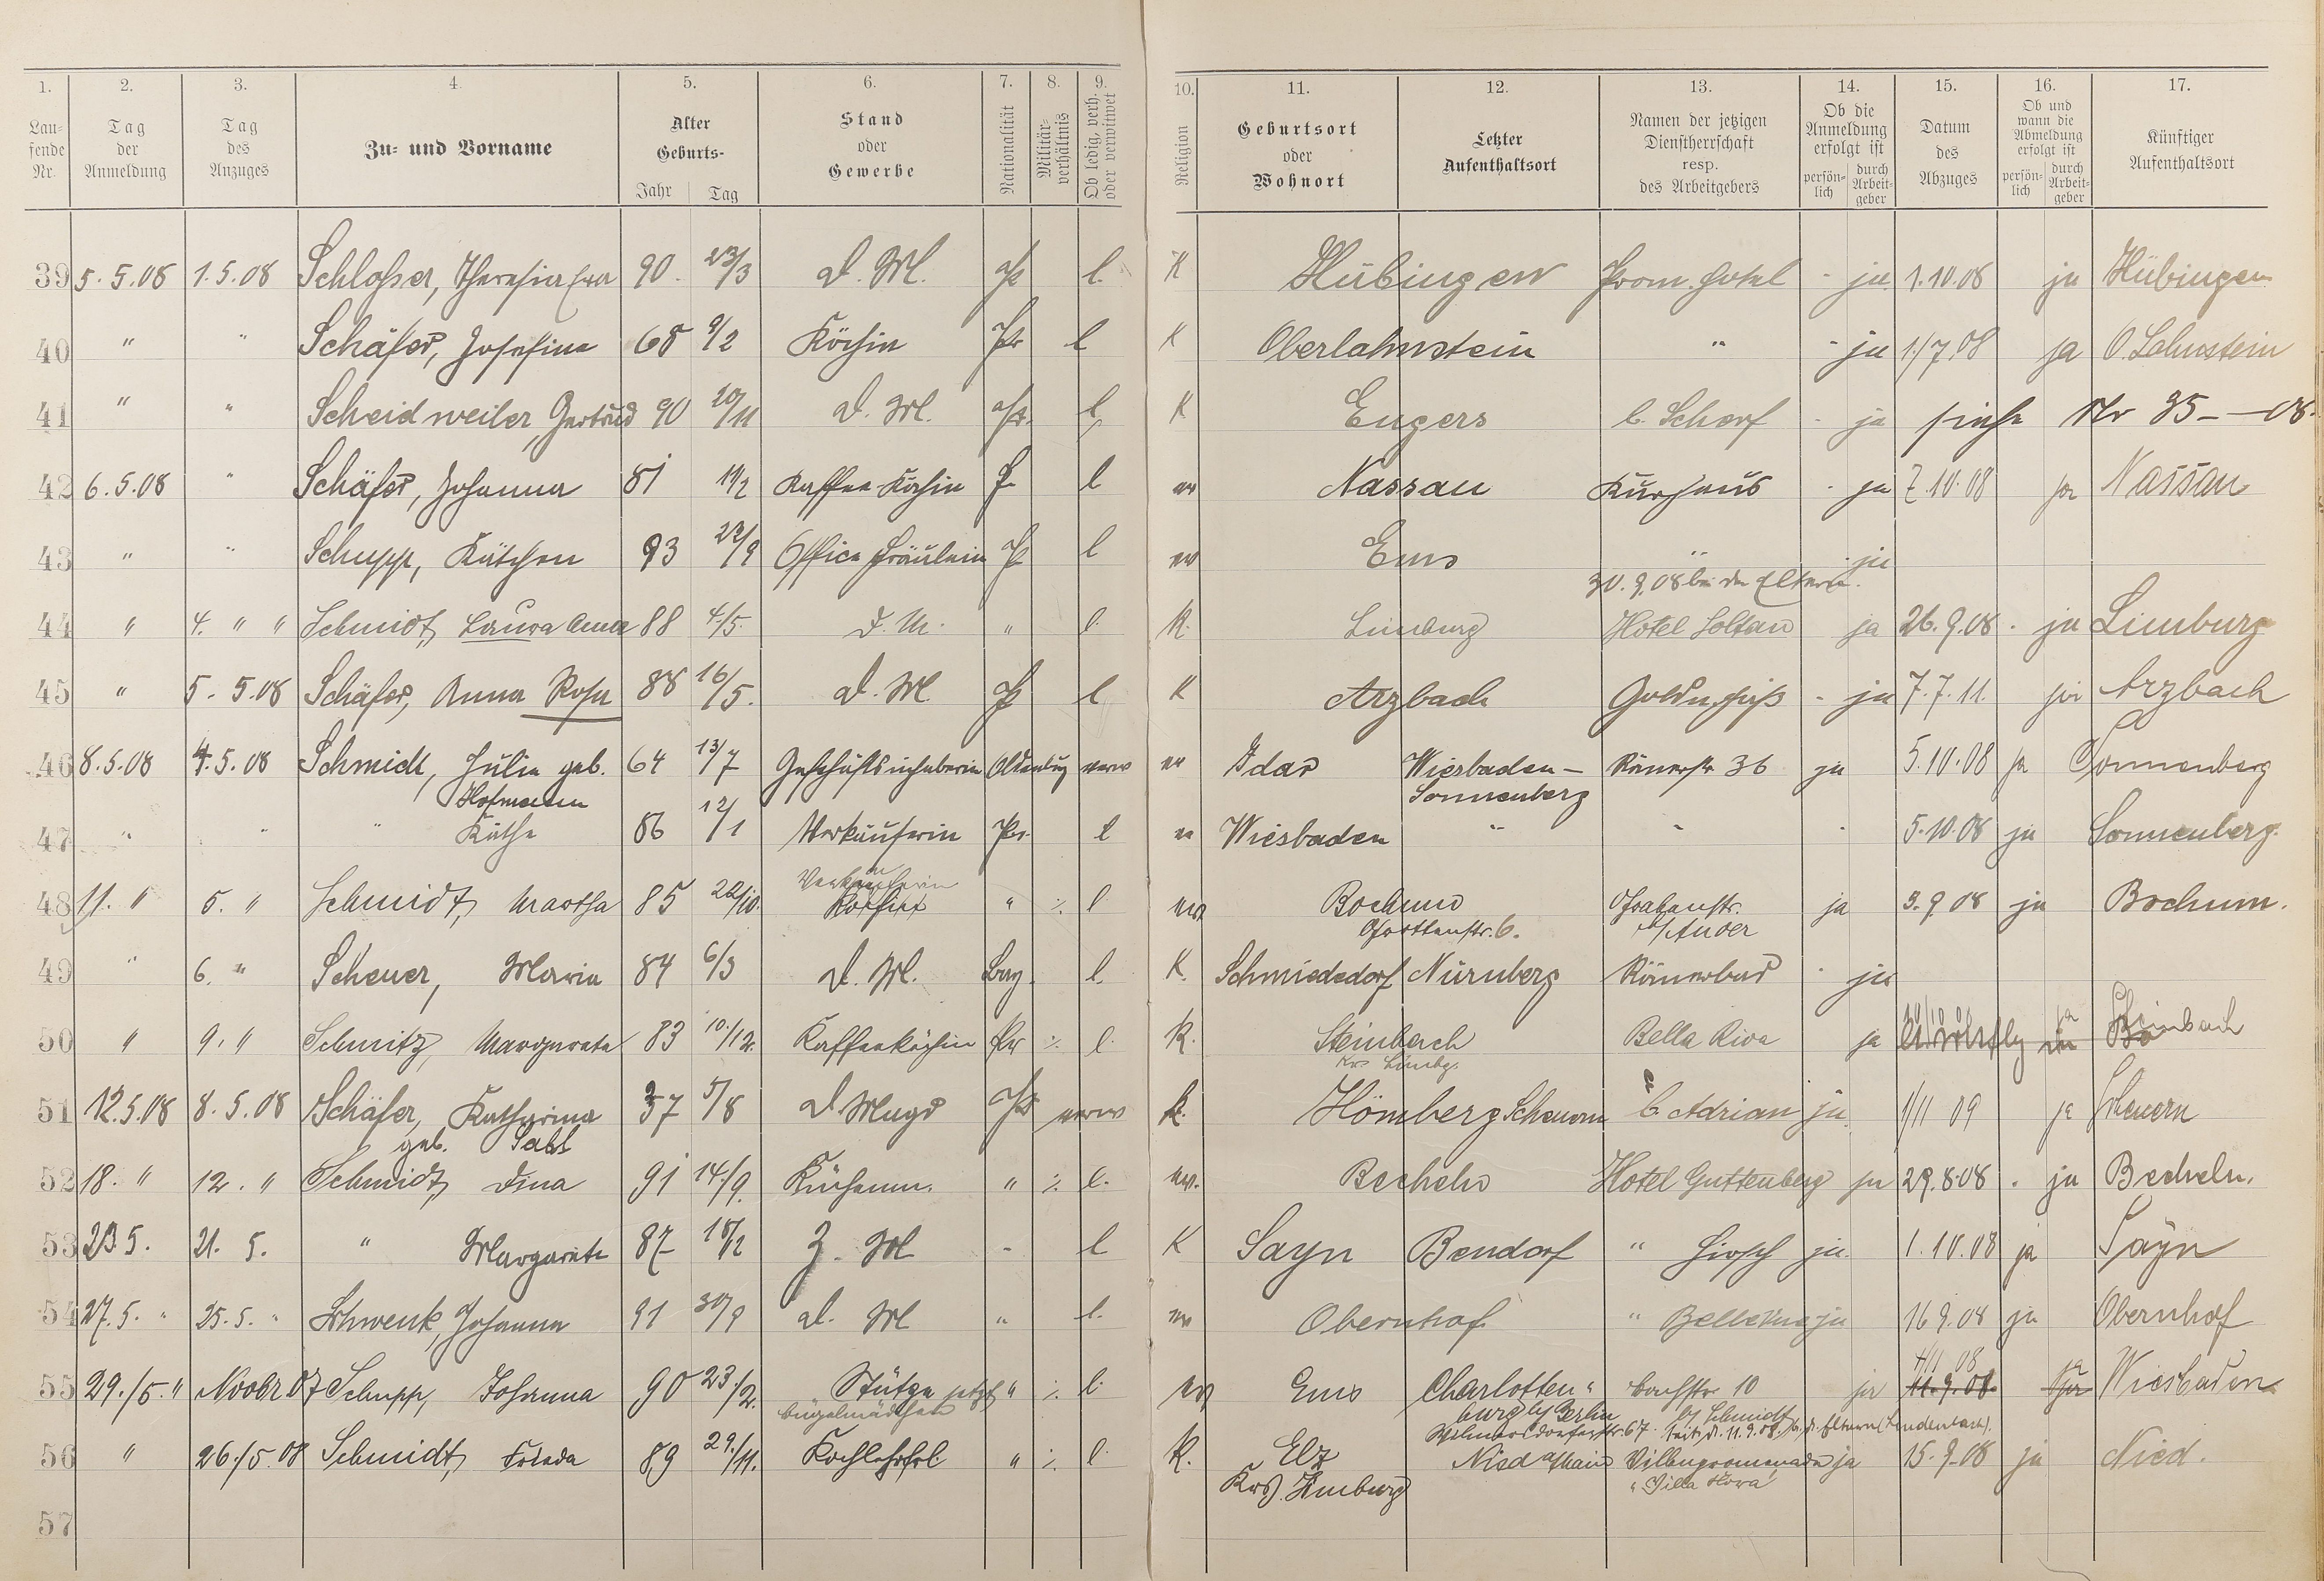 1. 2. 3. 4. 5. 6. 7. 8. 9. 10. 11. 12. 13. 14. 15. 16. 17.
Lau-fende Nr. Tag der Anmeldung Tag des Anzuges Zu- und Vorname Alter Geburts- Jahr Tag Stand oder Gewerbe Nationalität Militär-verhältnis Ob ledig, verh. oder verwitwet Religion Geburtsort oder Wohnort Letzter Aufenthaltsort Namen der jetzigen Dienstherrschaft resp. des Arbeitgebers Ob die Anmeldung erfolgt ist persön-lich durch Arbeit-geber Datum des Abzuges Ob und wann die Abmeldung erfolgt ist persön-lich durch Arbeit-geber Künftiger Aufenthaltsort
39 5.5.08 1.5.08 Schloßer, Theresia Eva 90 23/3 D. M. Pr l. K Hübingen Prom. Hotel - ja 1.10.08 ja Hübingen
40 " " Schäfer, Josefine 68 9/2 Köchin Pr l K Oberlahnstein " - ja 1/7.08 ja O.Lahnstein
41 " " Scheidweiler, Gertrud 90 20/11 D. M. Pr. l K Engers b. Scharf - ja siehe Nr 35 — 08.
42 6.5.08 " Schäfer, Johanna 81 19/2 Kaffee Köchin Pr l ev Nassau Kurhaus - ja 7.10.08 ja Nassau
43 " " Schupp, Kätchen 93 22/9 Office Fräulein Pr l ev Ems " - ja
30.9.08 bei den Eltern.
44 " 4. " " Schmidt, Laura Anna 88 4/5. D. M. " l. K. Limburg Hotel Soltau ja 26.9.08. ja Limburg
45 " 5.5.08 Schäfer, Anna Rosa 88 16/5. D. M Pr l K Arzbach Goldn. Fuß - ja 7.7.11. ja Arzbach
46 8.5.08 4.5.08 Schmidt, Julie geb. 64 13/7 Geschäftsinhaberin Oldenburg verw ev Idar Wiesbaden- Römerstr 36 ja 5.10.08 ja Sonnenberg
Hofmann Sonnenberg
47 " " " Käthe 86 12/1 Verkäuferin Pr. l ev Wiesbaden " " " 5.10.08 ja Sonnenberg.
Verkäuferin
48 11. " 5. " Schmidt, Martha 85 22/10. Köchin " ./. l ev. Bochum Grabenstr. ja 3.9.08 ja Bochum.
Gottenstr. 6.
49 " 6. " Scheuer, Maria 84 6/3 D. M. Bay. l. K. Schmiededorf Nürnberg Römerbad - ja
50 " 9. " Schmitz, Margareta 83 10./12. Kaffeeköchin Pr ./. l. K. Steinbach Bella Riva ja ja Steinbach
Krs Limbg.
51 12.5.08 8.5.08 Schäfer, Katharina 37 5/8 D. Magd Pr verw k. Hömberg Scheuern b. Adrian ja 1/11 09 ja Scheuern
geb. Sabl
52 18. " 12. " Schmidt, Dina 91 14./9. Küchenm. " ./. l. ev. Becheln Hotel Guttenberg ja 29.8.08. ja Becheln.
53 23.5. 21. 5. " Margarete 87 18/12 Z. M " l K Sayn Bendorf " Hirsch ja 1.10.08 ja Sayn
54 27.5. " 25.5. " Schwenk, Johanna 91 30/9 D. M " l. ev Obernhof " Bellevue ja 16.9.08 ja Obernhof
4/11 08 ja
55 29./5. " Novbr. 07 Schupp, Johanna 90 23./2. Stütze jetzt " ./. l. ev Ems Charlotten- Bachstr. 10 ja 11.9.08. ja Wiesbaden
Bügelmädchen burg b/ Berlin b/ Schmidt
Wilmersdorferstr. 67. seit d. 11.9.08. b. d. Eltern (Lindenbach).
56 " 26./5.08 Schmidt, Frieda 89 29./11. Kochlehrfrl. " ./. l. K. Elz Nied a/Main Villenpromenade ja 15.9.08 ja Nied.
Krs. Limburg "Villa Flora"
57